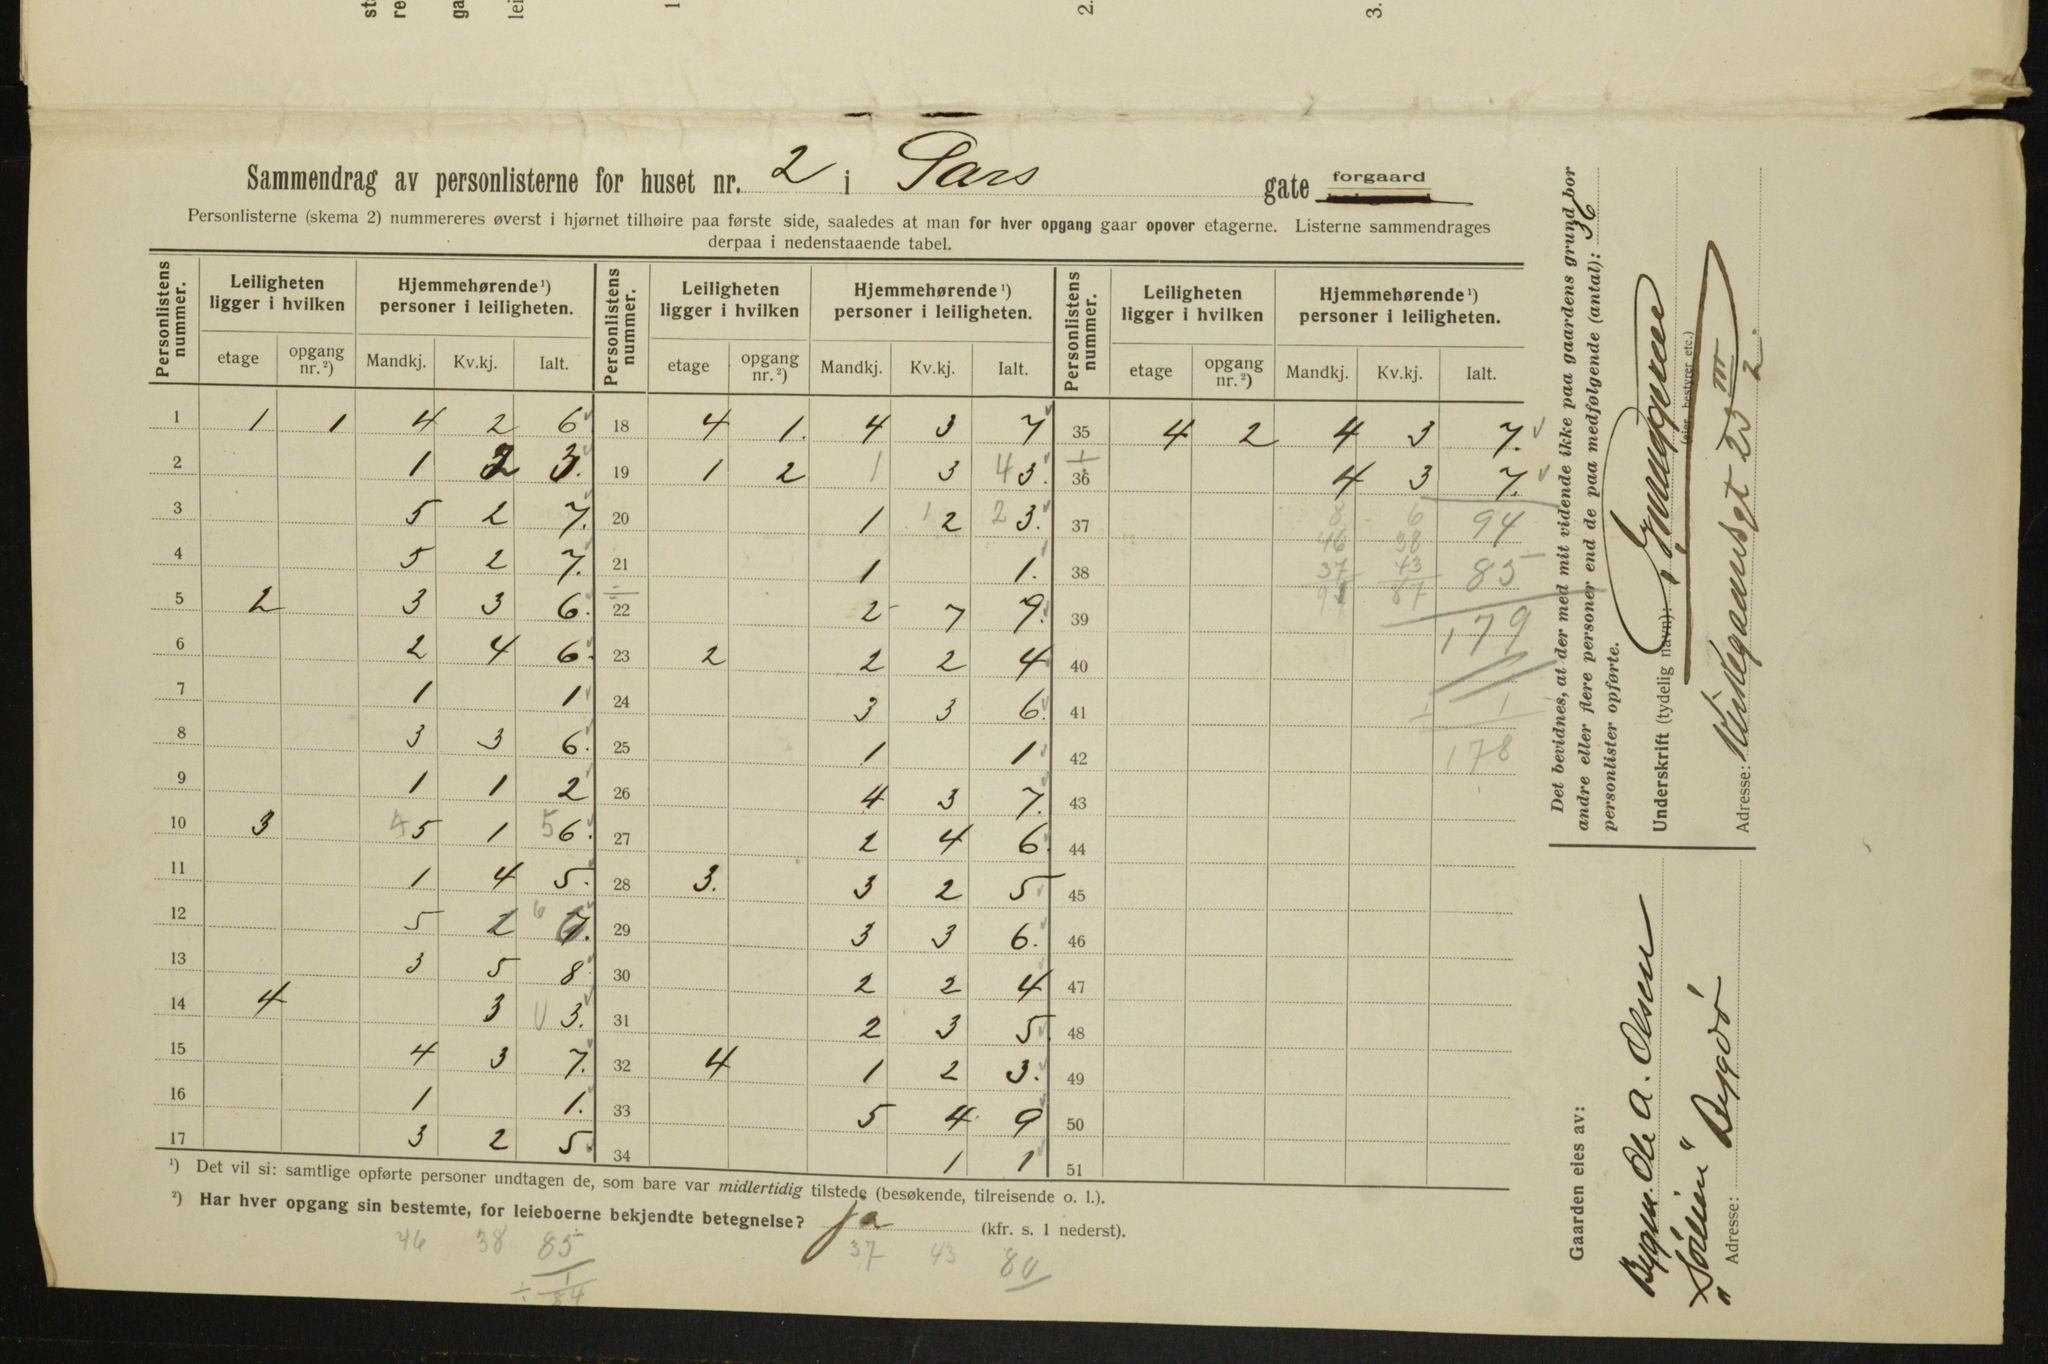 Sammendrag av personlisterne for huset nr. 2 i Sars gate forgaard
Personlisterne (skema 2) nummereres øverst i hjørnet tilhøire paa første side, saaledes at man for hver opgang gaar opover etagerne. Listerne sammendrages
derpaa i nedenstaaende tabel.
Personlistens nummer. | Leiligheten ligger i hvilken | Hjemmehørende ¹) personer i leiligheten. | Personlistens nummer. | Leiligheten ligger i hvilken | Hjemmehørende ¹) personer i leiligheten. | Personlistens nummer. | Leiligheten ligger i hvilken | Hjemmehørende ¹) personer i leiligheten.
etage | opgang nr. ²) | Mandkj. | Kv.kj. | Ialt. | etage | opgang nr. ²) | Mandkj. | Kv.kj. | Ialt. | etage | opgang nr. ²) | Mandkj. | Kv.kj. | Ialt.
1 | 1 | 1 | 4 | 2 | 6 | 18 | 4 | 1. | 4 | 3 | 7 | 35 | 4 | 2 | 4 | 3 | 7.
2 | 1 | 2 | 3. | 19 | 1 | 2 | 1 | 3 | 4 3. | 36 | 4 | 3 | 7.
3 | 5 | 2 | 7. | 20 | 1 | 1 2 | 2 3. | 37 | 8 | 6 | 94
4 | 5 | 2 | 7. | 21 | 1 | 1. | 38 | 46 37 | 38 43 | 85
5 | 2 | 3 | 3 | 6. | 22 | 2 | 7 | 9. | 39 | 91 | 87 | 179
6 | 2 | 4 | 6. | 23 | 2 | 2 | 2 | 4 | 40
7 | 1 | 1 | 24 | 3 | 3 | 6. | 41 | 1
8 | 3 | 3 | 6. | 25 | 1 | 1 | 42 | 178
9 | 1 | 1 | 2 | 26 | 4 | 3 | 7. | 43
10 | 3 | 4 5 | 1 | 5 6. | 27 | 2 | 4 | 6. | 44
11 | 1 | 4 | 5. | 28 | 3. | 3 | 2 | 5 | 45
12 | 5 | 2 | 6 7. | 29 | 3 | 3 | 6. | 46
13 | 3 | 5 | 8 | 30 | 2 | 2 | 4 | 47
14 | 4 | 3 | 3. | 31 | 2 | 3 | 5 | 48
15 | 4 | 3 | 7. | 32 | 4 | 1 | 2 | 3. | 49
16 | 1 | 1. | 33 | 5 | 4 | 9 | 50
17 | 3 | 2 | 5. | 34 | 1 | 1 | 51
¹) Det vil si: samtlige opførte personer undtagen de, som bare var midlertidig tilstede (besøkende, tilreisende o. l.).
²) Har hver opgang sin bestemte, for leieboerne bekjendte betegnelse? ja (kfr. s. 1 nederst).
46 38 85 37 43 80
÷ 1
84
Det bevidnes, at der med mit vidende ikke paa gaardens grund bor
andre eller flere personer end de paa medfølgende (antal): 36
personlister opførte.
Underskrift (tydelig navn):
(eier, bestyrer etc.)
Adresse:
Gaarden eies av:
Bygm. Ole A. Olsen
"Solliein" Bygdö
Adresse:
1
2.
3.